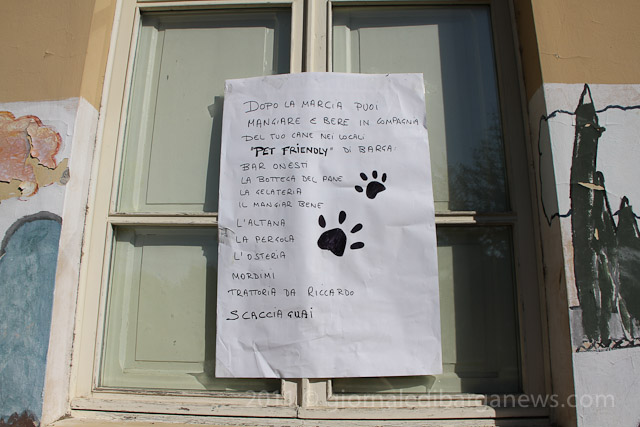 DOPO LA MARCIA PUOI
MANGIARE E BERE IN COMPAGNIA
DEL TUO CANE NEI LOCALI
"PET FRIENDLY" DI BARGA:
BAR ONESTI
LA BOTTEGA DEL PANE
LA GELATERIA
IL MANGIAR BENE
L'ALTANA
LA PERGOLA
L'OSTERIA
MORDIMI
TRATTORIA DA RICCARDO
SCACCIAGUAI
© giornaledibarganews.com